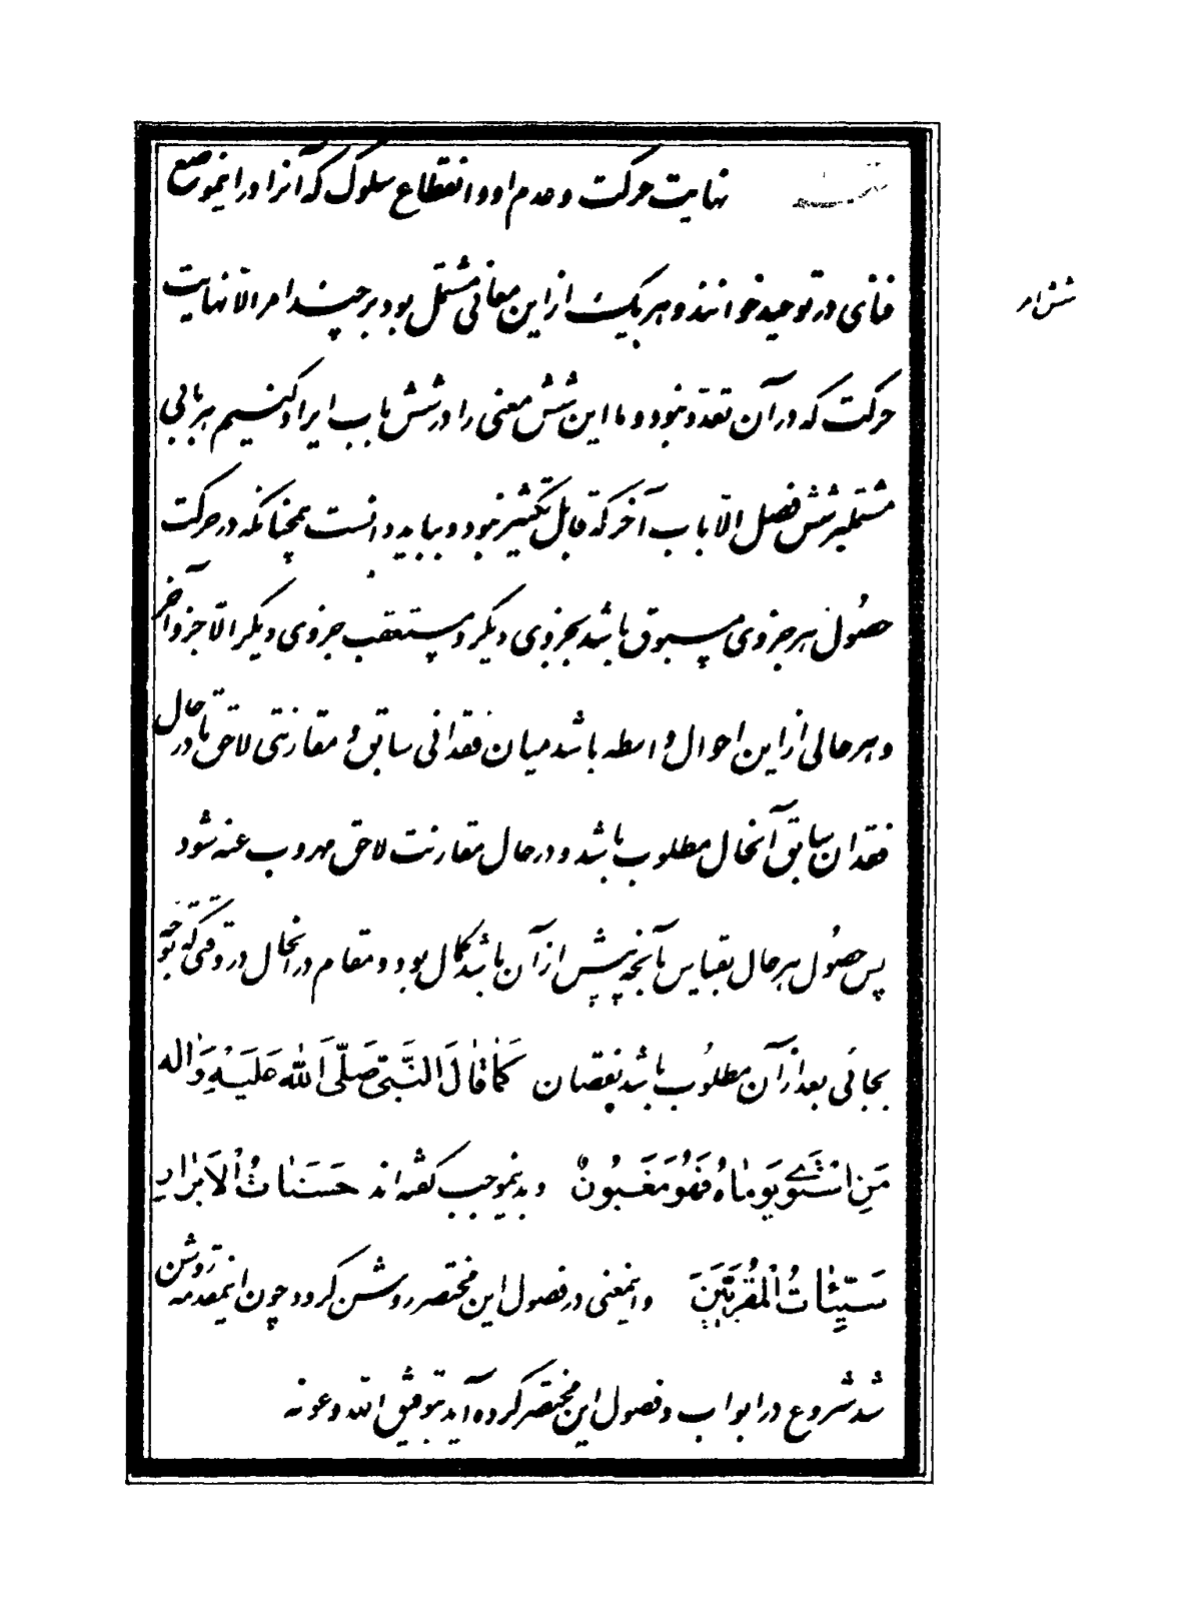 نهایت حرکت و عدم او و انقطاع سلوک که آنرا در اینموضع
فنای در توحید خوانند و هر یک از این معانی مشتمل بود بر چند امر الّا نهایت
شش امر
حرکت که در آن تعدّد نبود و ما این شش معنی را در شش باب ایراد کنیم هر بابی
مشتمل بر شش فصل الّا باب آخر که قابل تکثیر نبود و بباید دانست همچنانکه در حرکت
حصُول هر جزوی مسبوق باشد بجزوی دیگر و مستعقب جزوی دیگر الّا جزو آخر
و هر حالی از این احوال واسطه باشد میان فقدانی سابق و مقارنتی لاحق تا در حال
فقدان سابق آنحال مطلوب باشد و در حال مقارنت لاحق مهروب عنه شود
پس حصُول هر حال بقیاس با آنچه پیش از آن باشد کمال بود و مقام در آنحال در وقتی که توجّه
بحالی بعد از آن مطلُوب باشد نقصان کَمٰا قٰالَ النَّبِیّ صَلَّی اَللّٰه عَلَیْهِ وَاٰله
مَنِ اسْتَویٰ یَوْمٰاهُ فَهُوَ مَغْبُونٌ و بدینموجب گفته‌اند حَسَنٰاتُ الْاَبْرٰارِ
سَیِّئٰاتُ الْمُقَرَّبینَ و اینمعنی در فصول این مختصر روشن گردد چون اینمقدمه روشن
شد شروع در ابواب و فصول این مختصر کرده آید بتوفیق الله و عونه